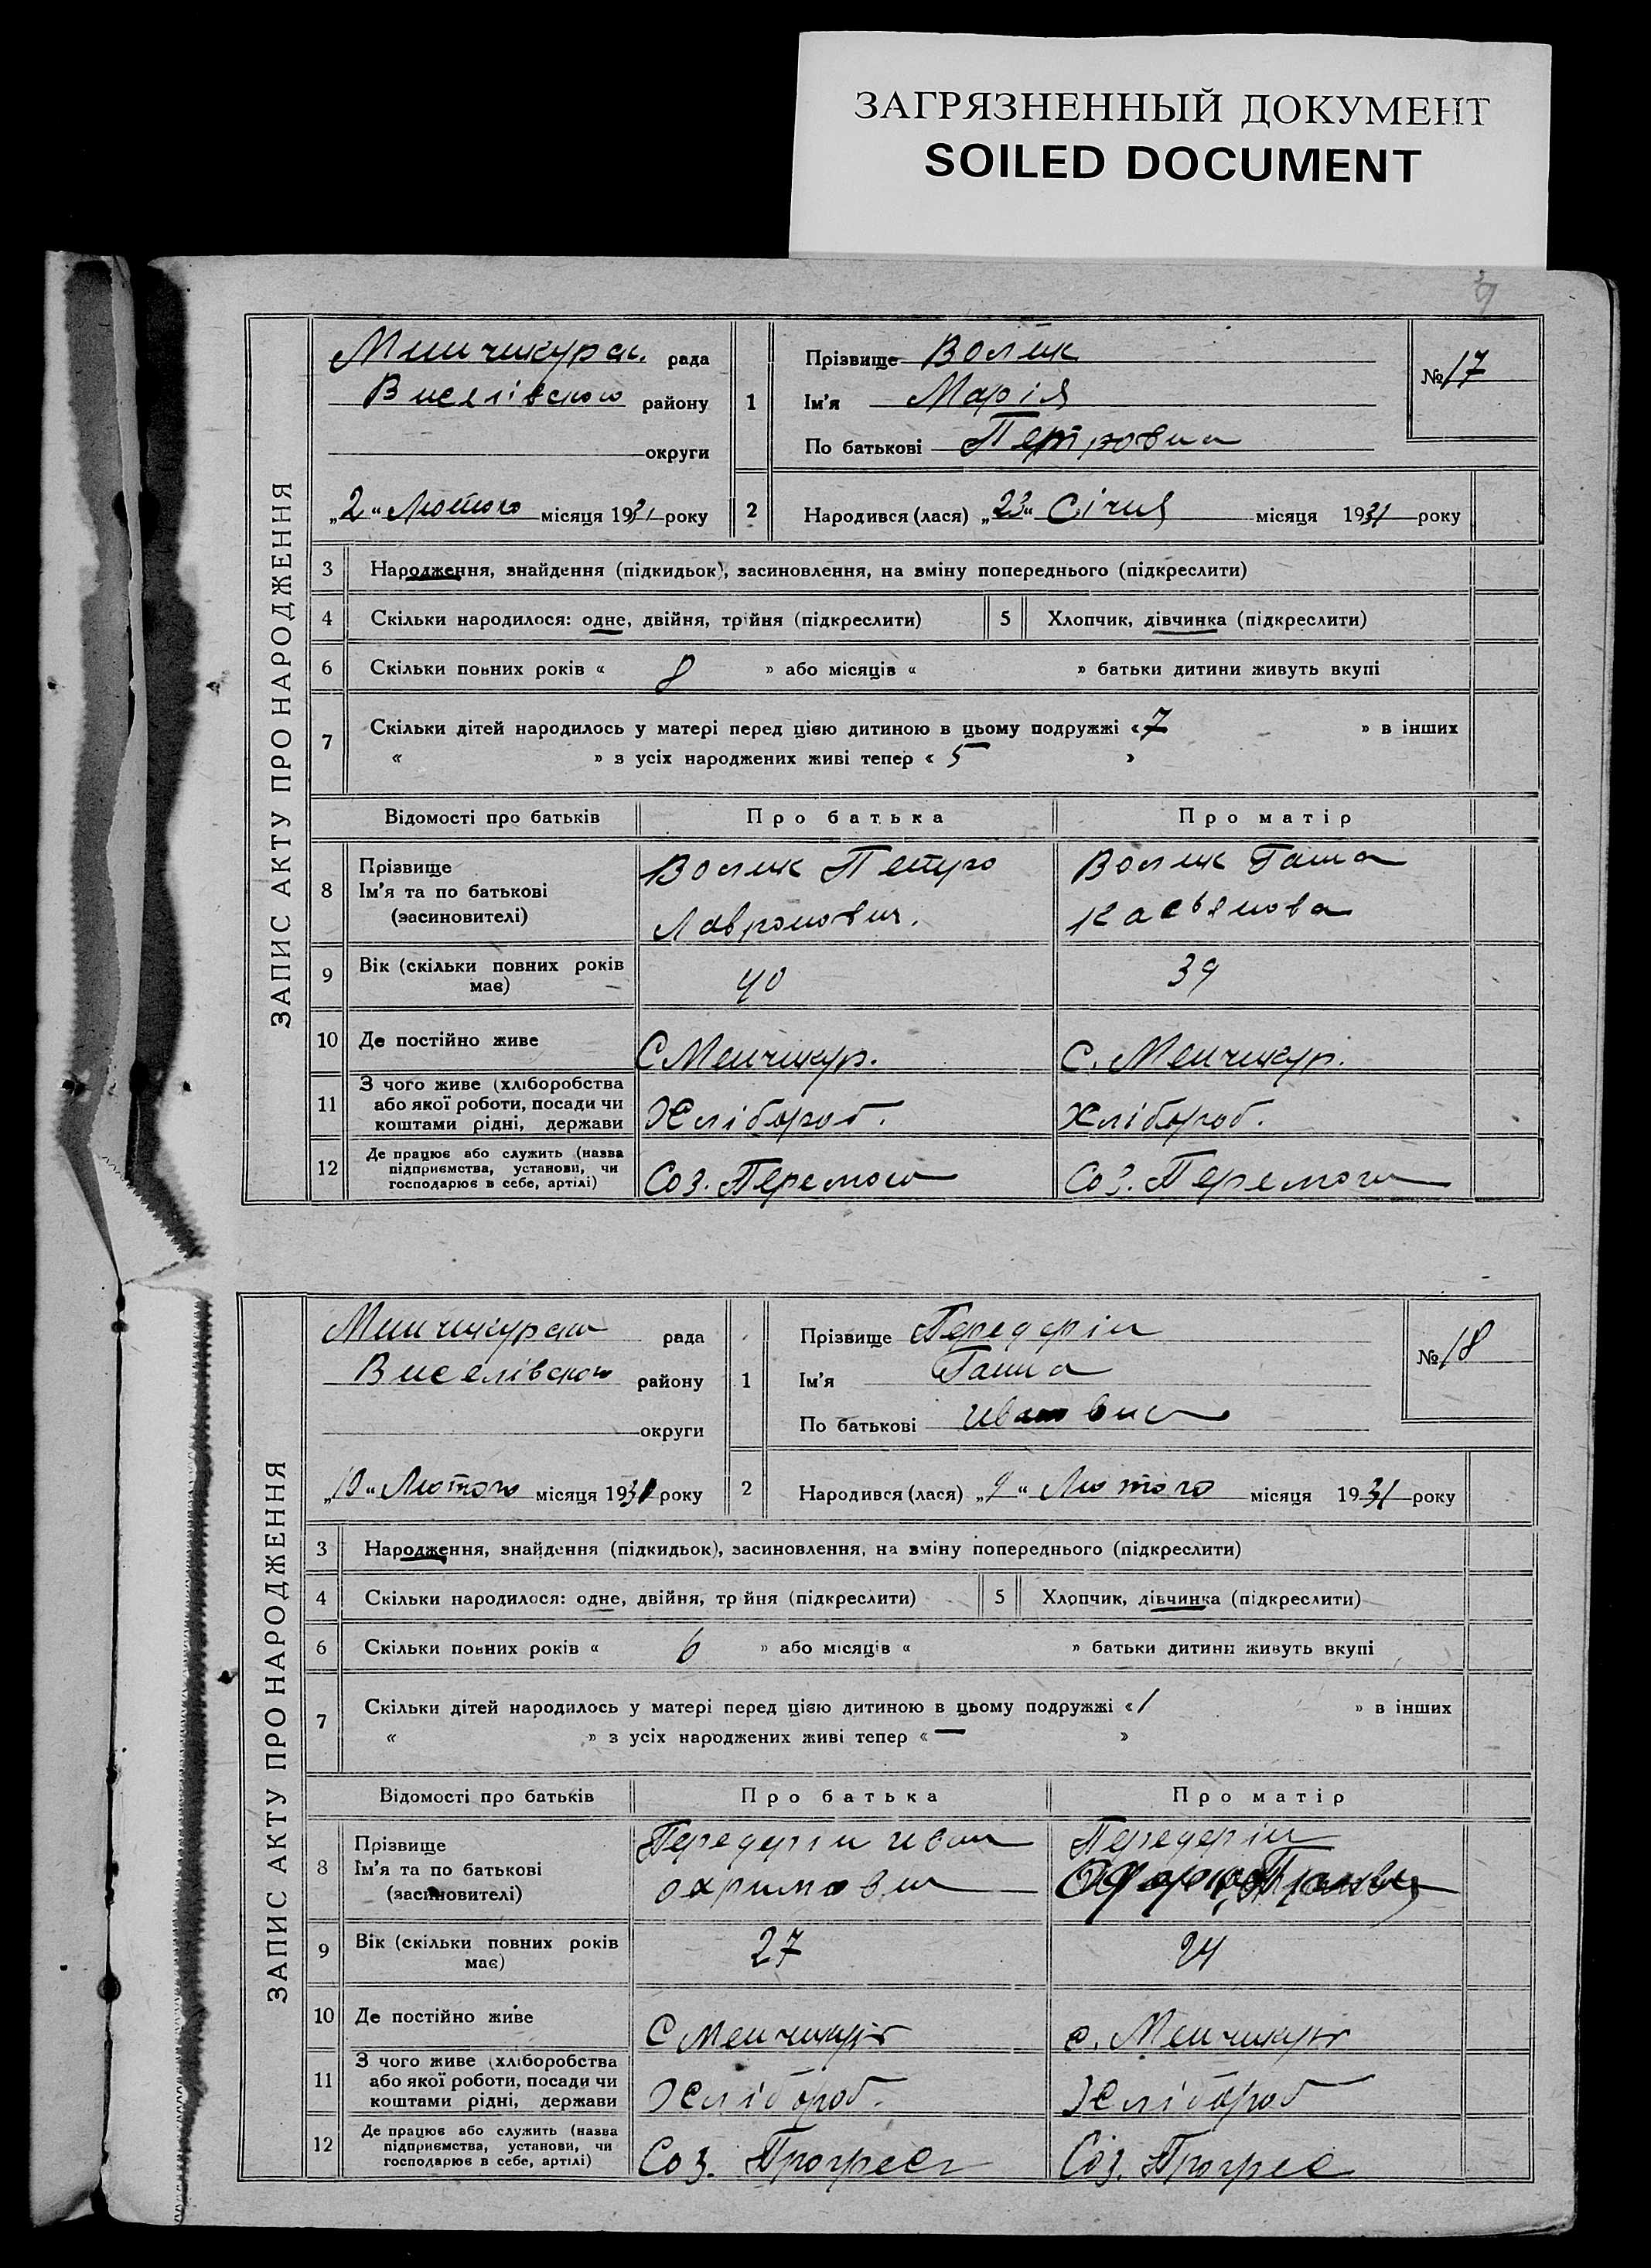 ЗАГРЯЗНЕННЫЙ ДОКУМЕНТ
SOILED DOCUMENT
ЗАПИС АКТУ ПРО НАРОДЖЕННЯ
рада
Виселівсково району
округи
„2“ Лютого місяця 1931 року
1
Прізвище Волик
Ім'я Марія
По батькові Петровна
№ 17
2
Народився (лася) „23“ Січня місяця 1931 року
3 Народження, знайдення (підкидьок), засиновлення, на зміну попереднього (підкреслити)
4 Скільки народилося: одне, двійня, трійня (підкреслити)
5 Хлопчик, дівчинка (підкреслити)
6 Скільки повних років « 8 » або місяців « » батьки дитини живуть вкупі
7 Скільки дітей народилось у матері перед цією дитиною в цьому подружжі « 7 » в інших
« » з усіх народжених живі тепер « 5 »
Відомості про батьків
Про батька
Про матір
8 Прізвище
Ім'я та по батькові
(засиновителі)
Волик Петро
Волик Ганна
Касьянова
9 Вік (скільки повних років
має)
40
39
10 Де постійно живе
С Менчикур.
С. Менчикур.
11 З чого живе (хліборобства
або якої роботи, посади чи
коштами рідні, держави
Хлібороб.
Хлібороб.
12 Де працює або служить (назва
підприємства, установи, чи
господарює в себе, артілі)
Соз. Перемога
Соз. Перемога
ЗАПИС АКТУ ПРО НАРОДЖЕННЯ
рада
Виселівсково району
округи
„10“ Лютого місяця 1931 року
1
Прізвище Передерій
Ім'я Ганна
По батькові
№ 18
2
Народився (лася) „9“ Лютого місяця 1931 року
3 Народження, знайдення (підкидьок), засиновлення, на зміну попереднього (підкреслити)
4 Скільки народилося: одне, двійня, трійня (підкреслити)
5 Хлопчик, дівчинка (підкреслити)
6 Скільки повних років « 6 » або місяців « » батьки дитини живуть вкупі
7 Скільки дітей народилось у матері перед цією дитиною в цьому подружжі « 1 » в інших
« » з усіх народжених живі тепер « — »
Відомості про батьків
Про батька
Про матір
8 Прізвище
Ім'я та по батькові
(засиновителі)
Передерій Иван
Охримович
Передерій
9 Вік (скільки повних років
має)
27
24
10 Де постійно живе
С Менчикур
с. Менчикур
11 З чого живе (хліборобства
або якої роботи, посади чи
коштами рідні, держави
Хлібороб.
Хлібороб
12 Де працює або служить (назва
підприємства, установи, чи
господарює в себе, артілі)
Соз. Прогрес
Соз. Прогрес